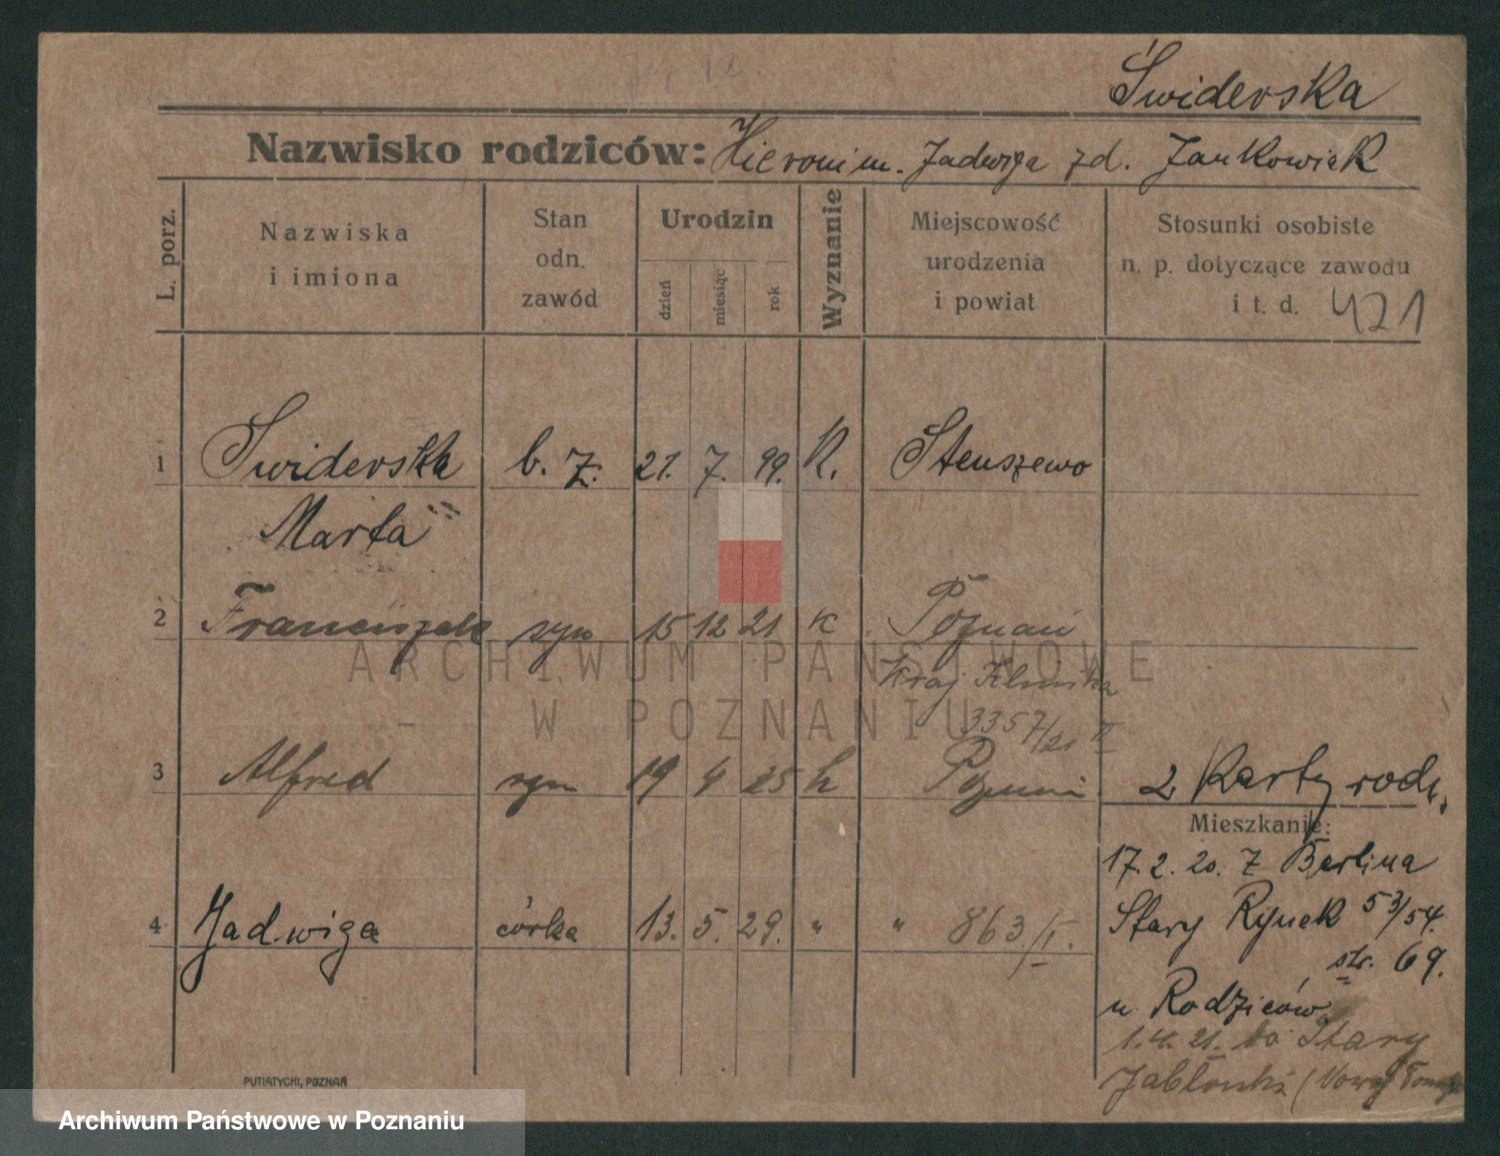 Świderska
Nazwisko rodziców: Hieronim. Jadwiga zd. Jankowiak
L. porz.
Nazwiska
i imiona
Stan
odn.
zawód
Urodzin
dzień
miesiąc
rok
Wyznanie
Miejscowość
urodzenia
i powiat
Stosunki osobiste
n. p. dotyczące zawodu
i t. d. 421
1 Swiderska b. Z. 21. 7. 99. K. Stenszewo
Marta
2 Franciszek syn 15 12 21 k Poznań
Kraj Klinika
3357/21 II
3 Alfred syn 19 4 25 k Poznań
2 Karty rodz.
Mieszkanie:
17. 2. 20. Z Berlina
4 Jadwiga córka 13. 5. 29. " " 863/I.
Stary Rynek 53/54.
str. 69.
u Rodziców
1. 4. 21. do Stary
Jabłonki (Nowy
PUTIATYCKI, POZNAŃ
ARCHIWUM PAŃSTWOWE
W POZNANIU
Archiwum Państwowe w Poznaniu